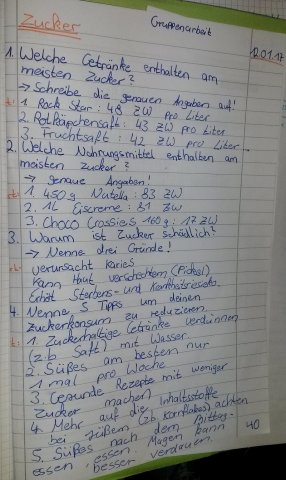 Zucker
Gruppenarbeit
12.01.17
1. Welche Getränke enthalten am
meisten Zucker?
→ Schreibe die genauen Angaben auf!
1. Rock Star: 48 ZW pro Liter
2. Rotkäpchensaft: 43 ZW pro Liter
3. Fruchtsaft: 42 ZW pro Liter
2. Welche Nahrungsmittel enthalten am
meisten Zucker?
→ genaue Angaben!
1. 450g Nutella: 83 ZW
2. 1L Eiscreme: 81 ZW
3. Choco Crossieis 160g: 17 ZW
3. Warum ist Zucker schädlich?
→ Nenne drei Gründe!
verursacht Karies
Kann Haut verschlechtern (Pickel)
Erhöt Sterbens- und
4. Nenne 5 Tipps um deinen
Zuckerkonsum zu reduzieren.
1. Zuckerhaltige Getränke verdünnen
(z.b Saft) mit Wasser
2. Süßes am besten nur
1 mal pro Woche
3. Gesunde Rezepte mit weniger
Zucker machen
4. Mehr auf die Inhaltsstoffe
bei süßem (zb Kornflakes) achten
5. Süßes nach dem Mittag-
essen essen. Magen kann
besser verdauen.
40